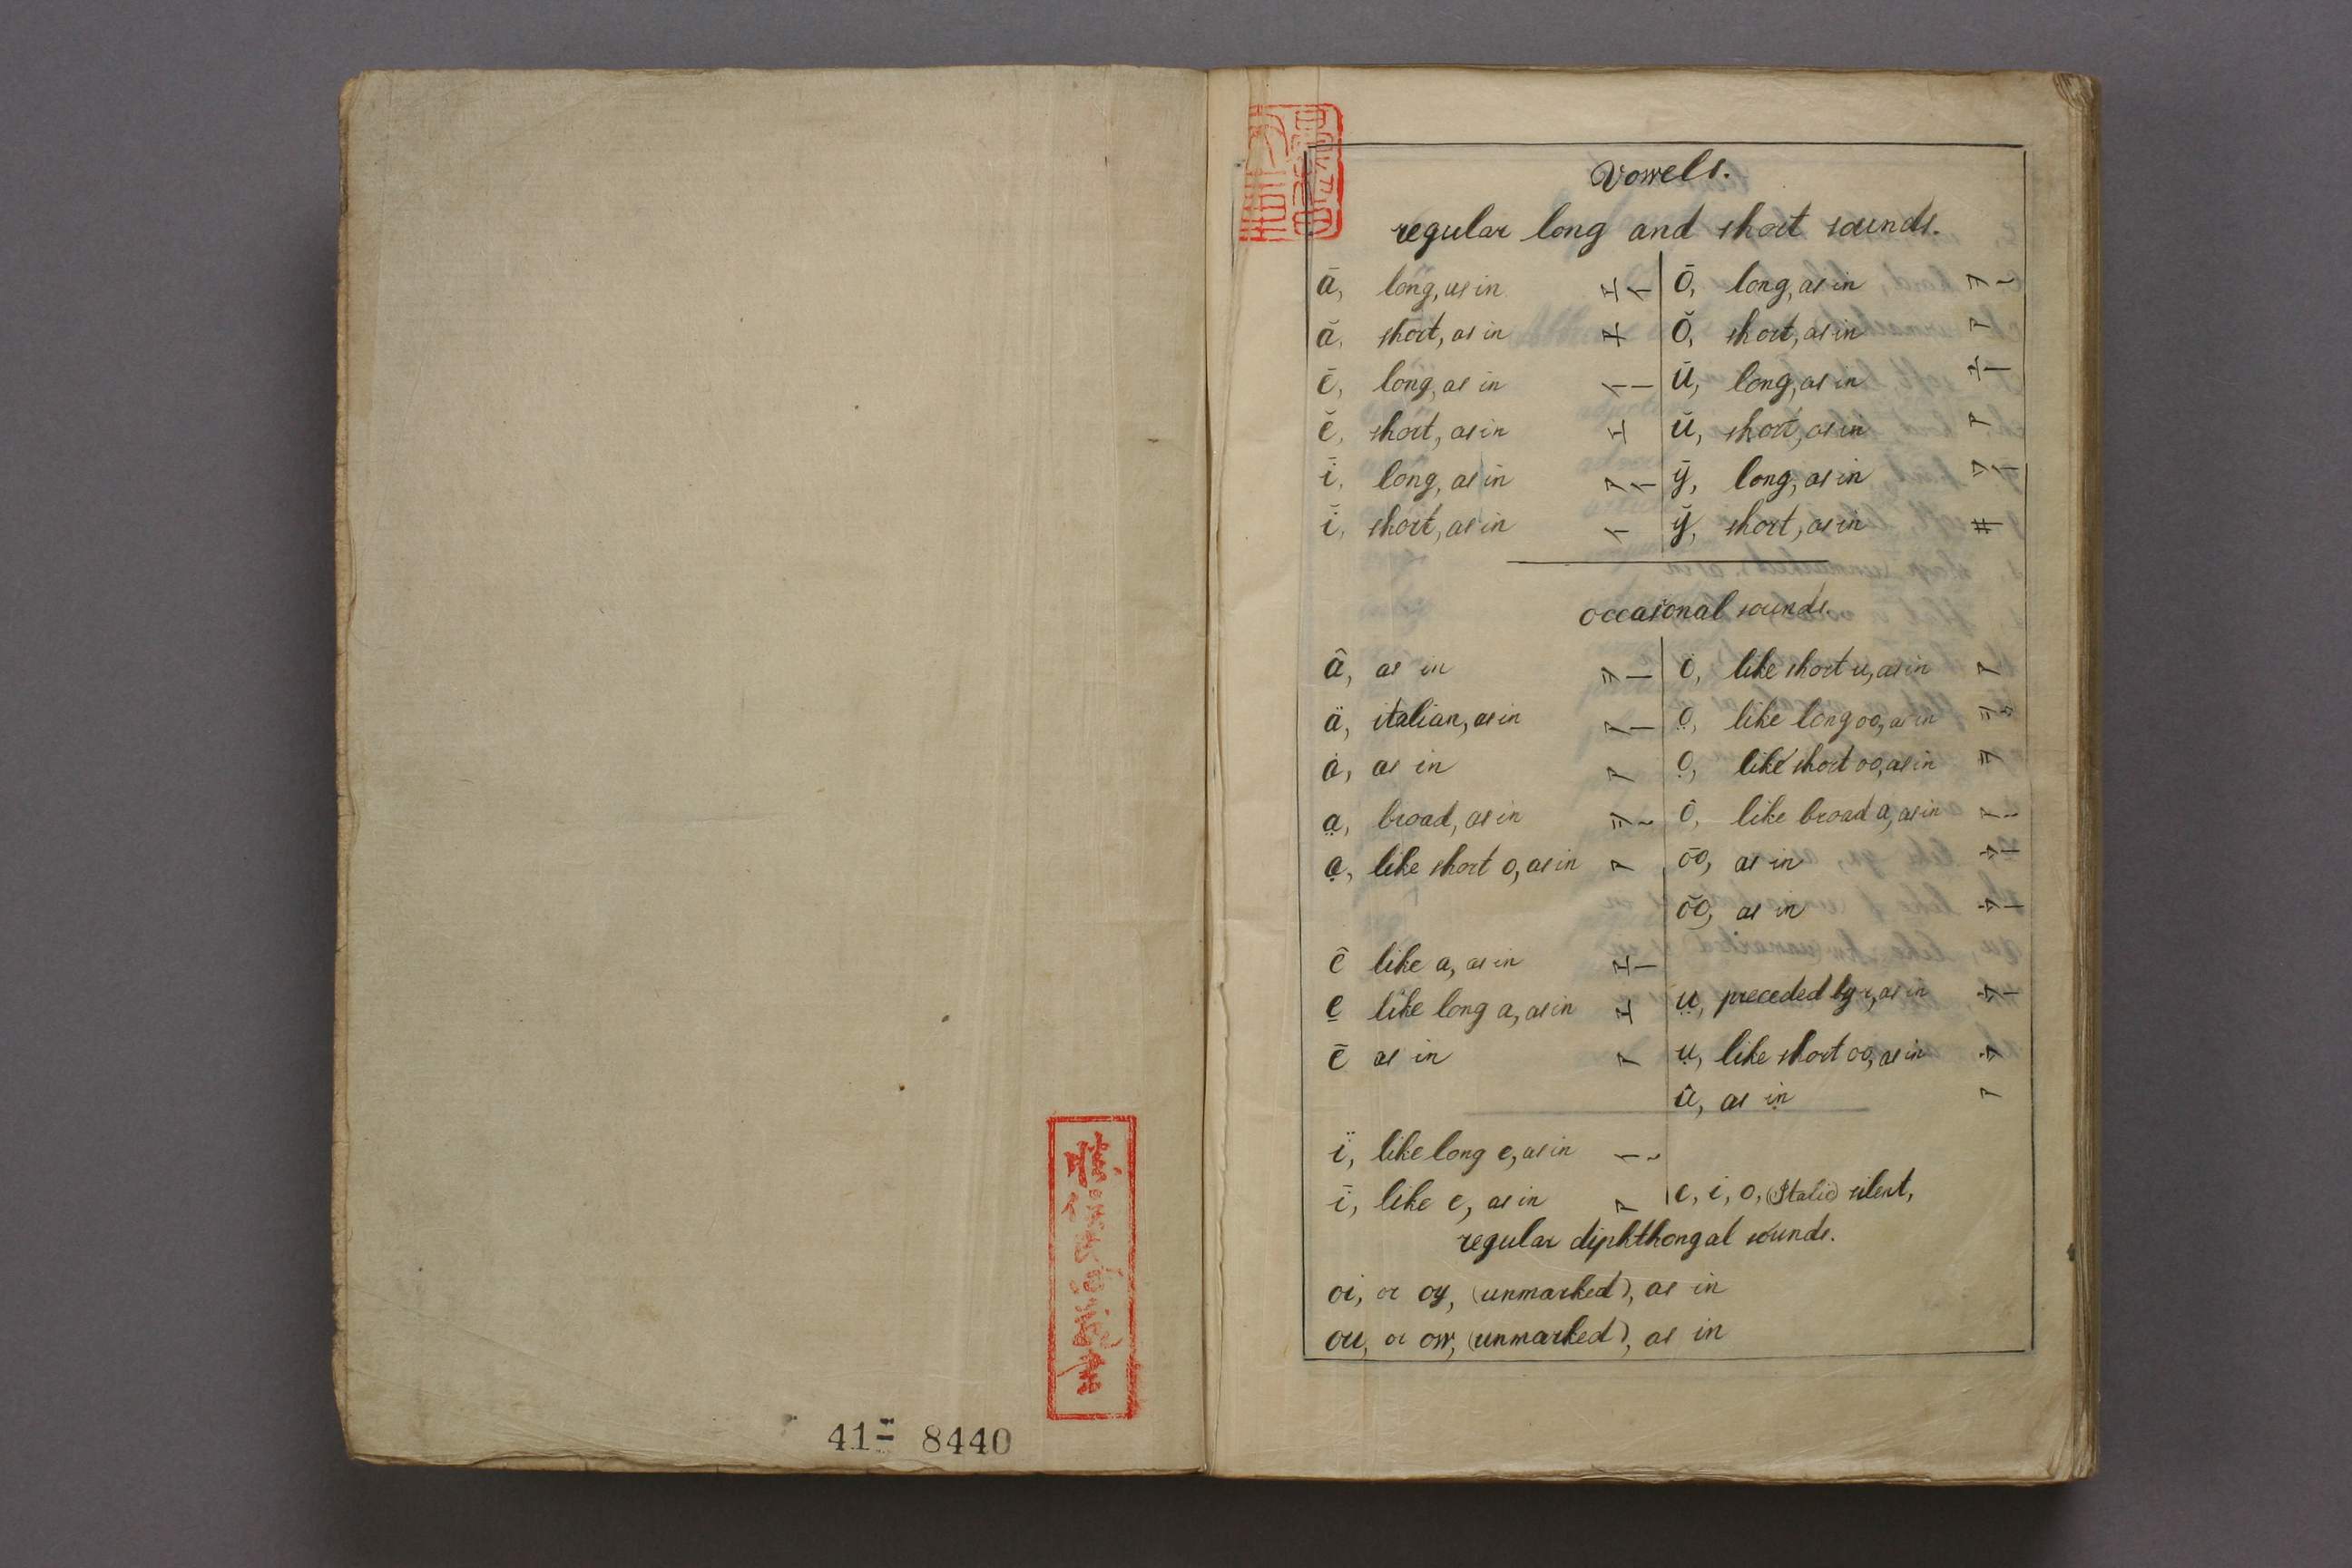 41= 8440
Vowels.
regular long and short sounds.
ā, long, as in エイ
ă, short, as in
ē, long, as in イー
ĕ, short, as in エ
ī, long, as in アイ
ĭ, short, as in イ
ō, long, as in ヲー
ŏ, short, as in ア
ū, long, as in ユー
ŭ, short, as in ア
ȳ, long, as in ワイ
y̆, short, as in ヰ
occasional sounds.
â, as in ヲー
ä, italian, as in アー
ȧ, as in ア
a̤, broad, as in ヲー
ạ, like short o, as in ア
ê like a, as in エー
e̱ like long a, as in エ
ẽ as in ア
ï, like long e, as in イー
ĩ, like e, as in ア
ȯ, like short u, as in ア
o̤, like long oo, as in
ọ, like short oo, as in ヲ
ô, like broad a, as in アー
o͞o, as in ウー
o͝o, as in ウー
ṳ, preceded by r, as in ウー
ụ, like short oo, as in ウ
û, as in ア
e, i, o, (Italic) silent,
regular diphthongal sounds.
oi, or oy, (unmarked), as in
ou, or ow, (unmarked), as in